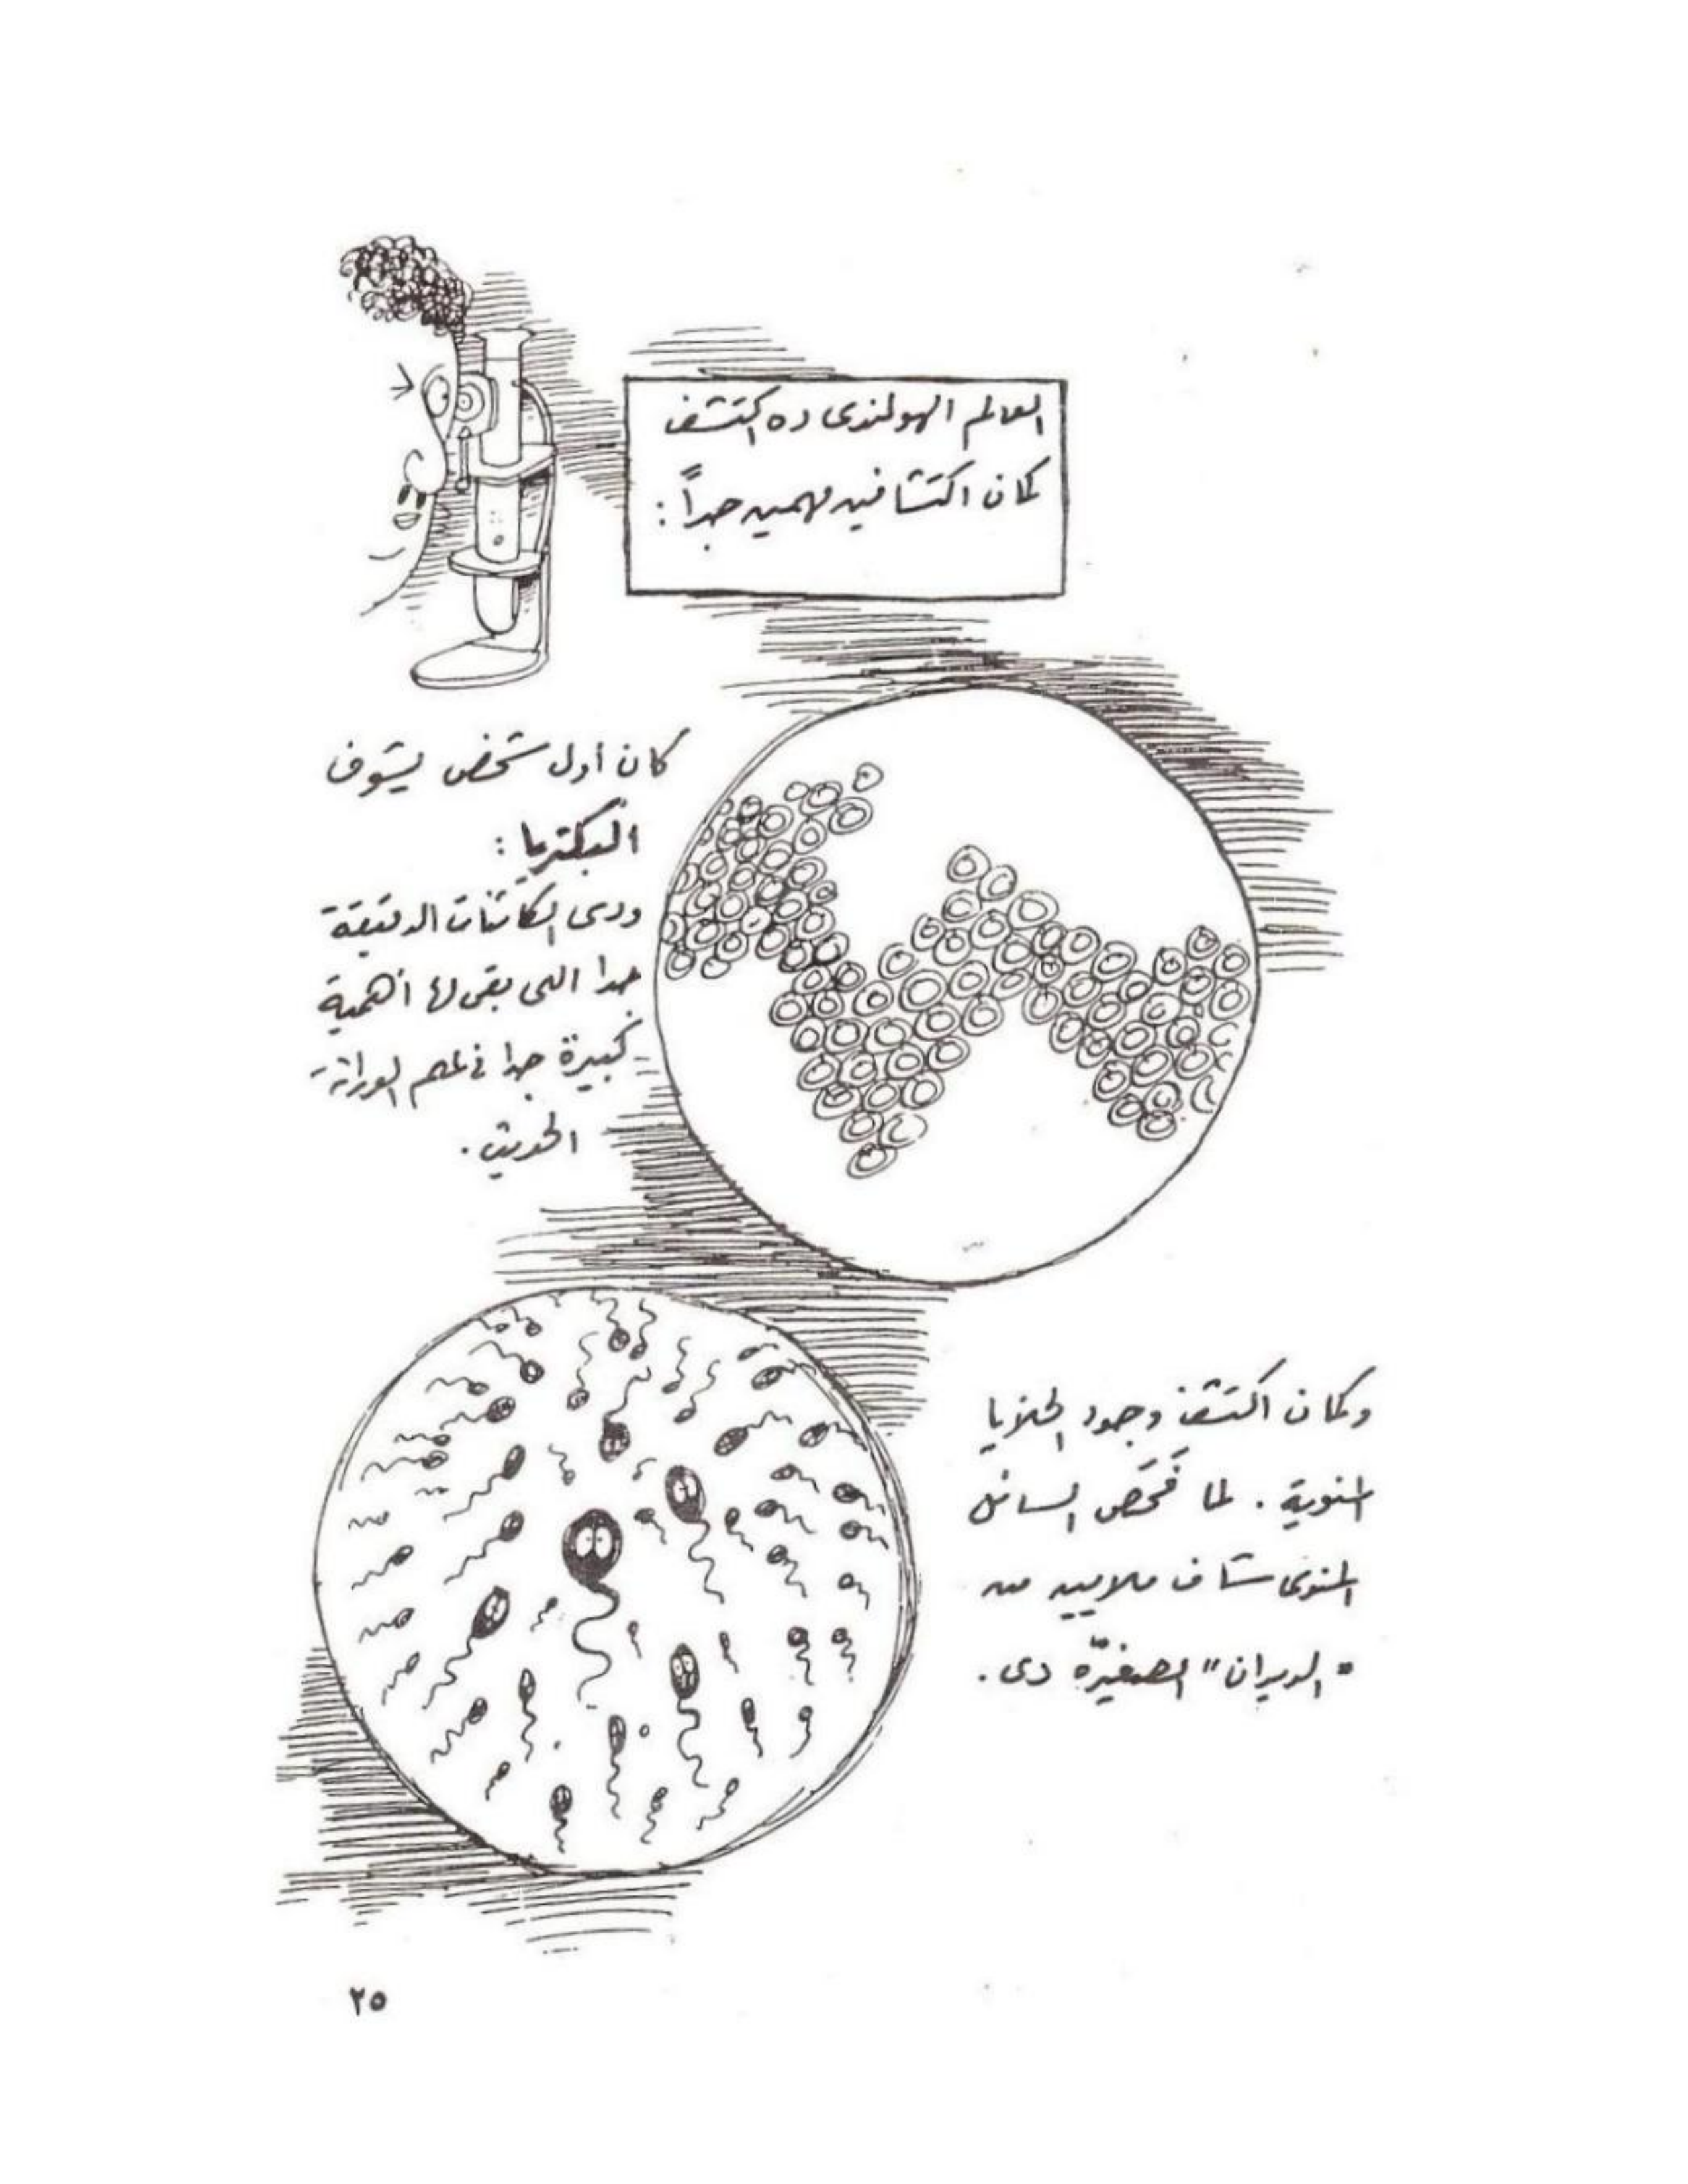 العالم الهولندى ده اكتشف
كمان اكتشافين مهمين جداً :
كان أول شخص يشوف
البكتريا :
ودى الكائنات الدقيقة
جدا اللى بقى لها أهمية
كبيرة جدا فى علم الوراثة
الحديث .
وكمان اكتشف وجود الخلايا
المنوية . لما فَحَص السائل
المنوى شاف ملايين من
"الديدان" الصغيّرة دى .
٢٥